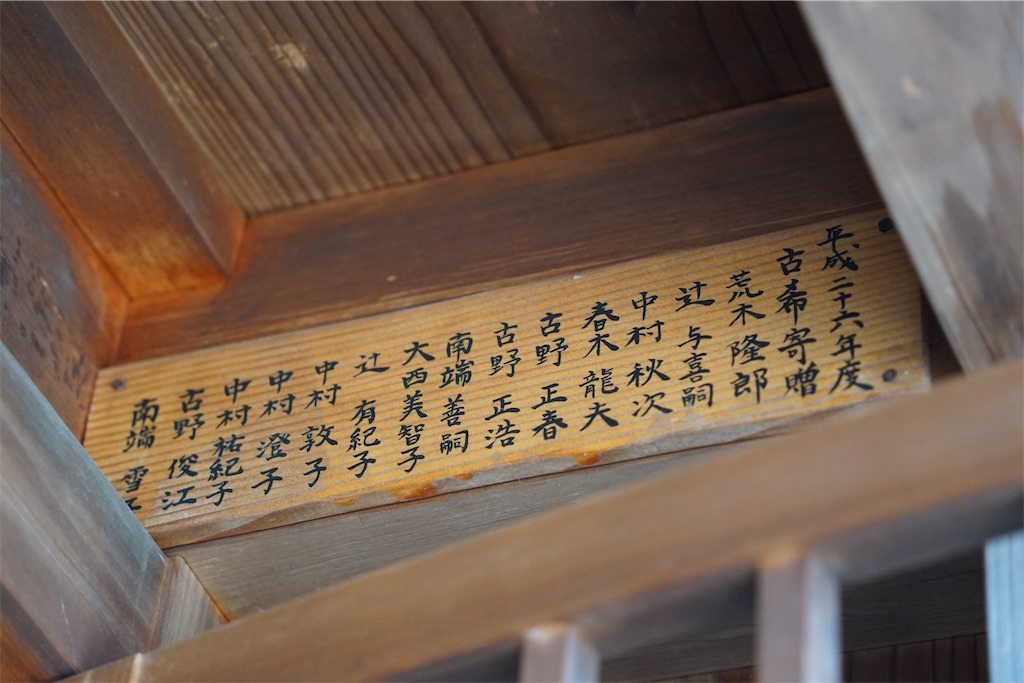 平成二十六年度
古希寄贈
荒木隆郎
辻与喜嗣
中村秋次
春木龍夫
古野正春
古野正浩
南端善嗣
大西美智子
辻有紀子
中村敦子
中村澄子
中村祐紀子
古野俊江
南端雪江